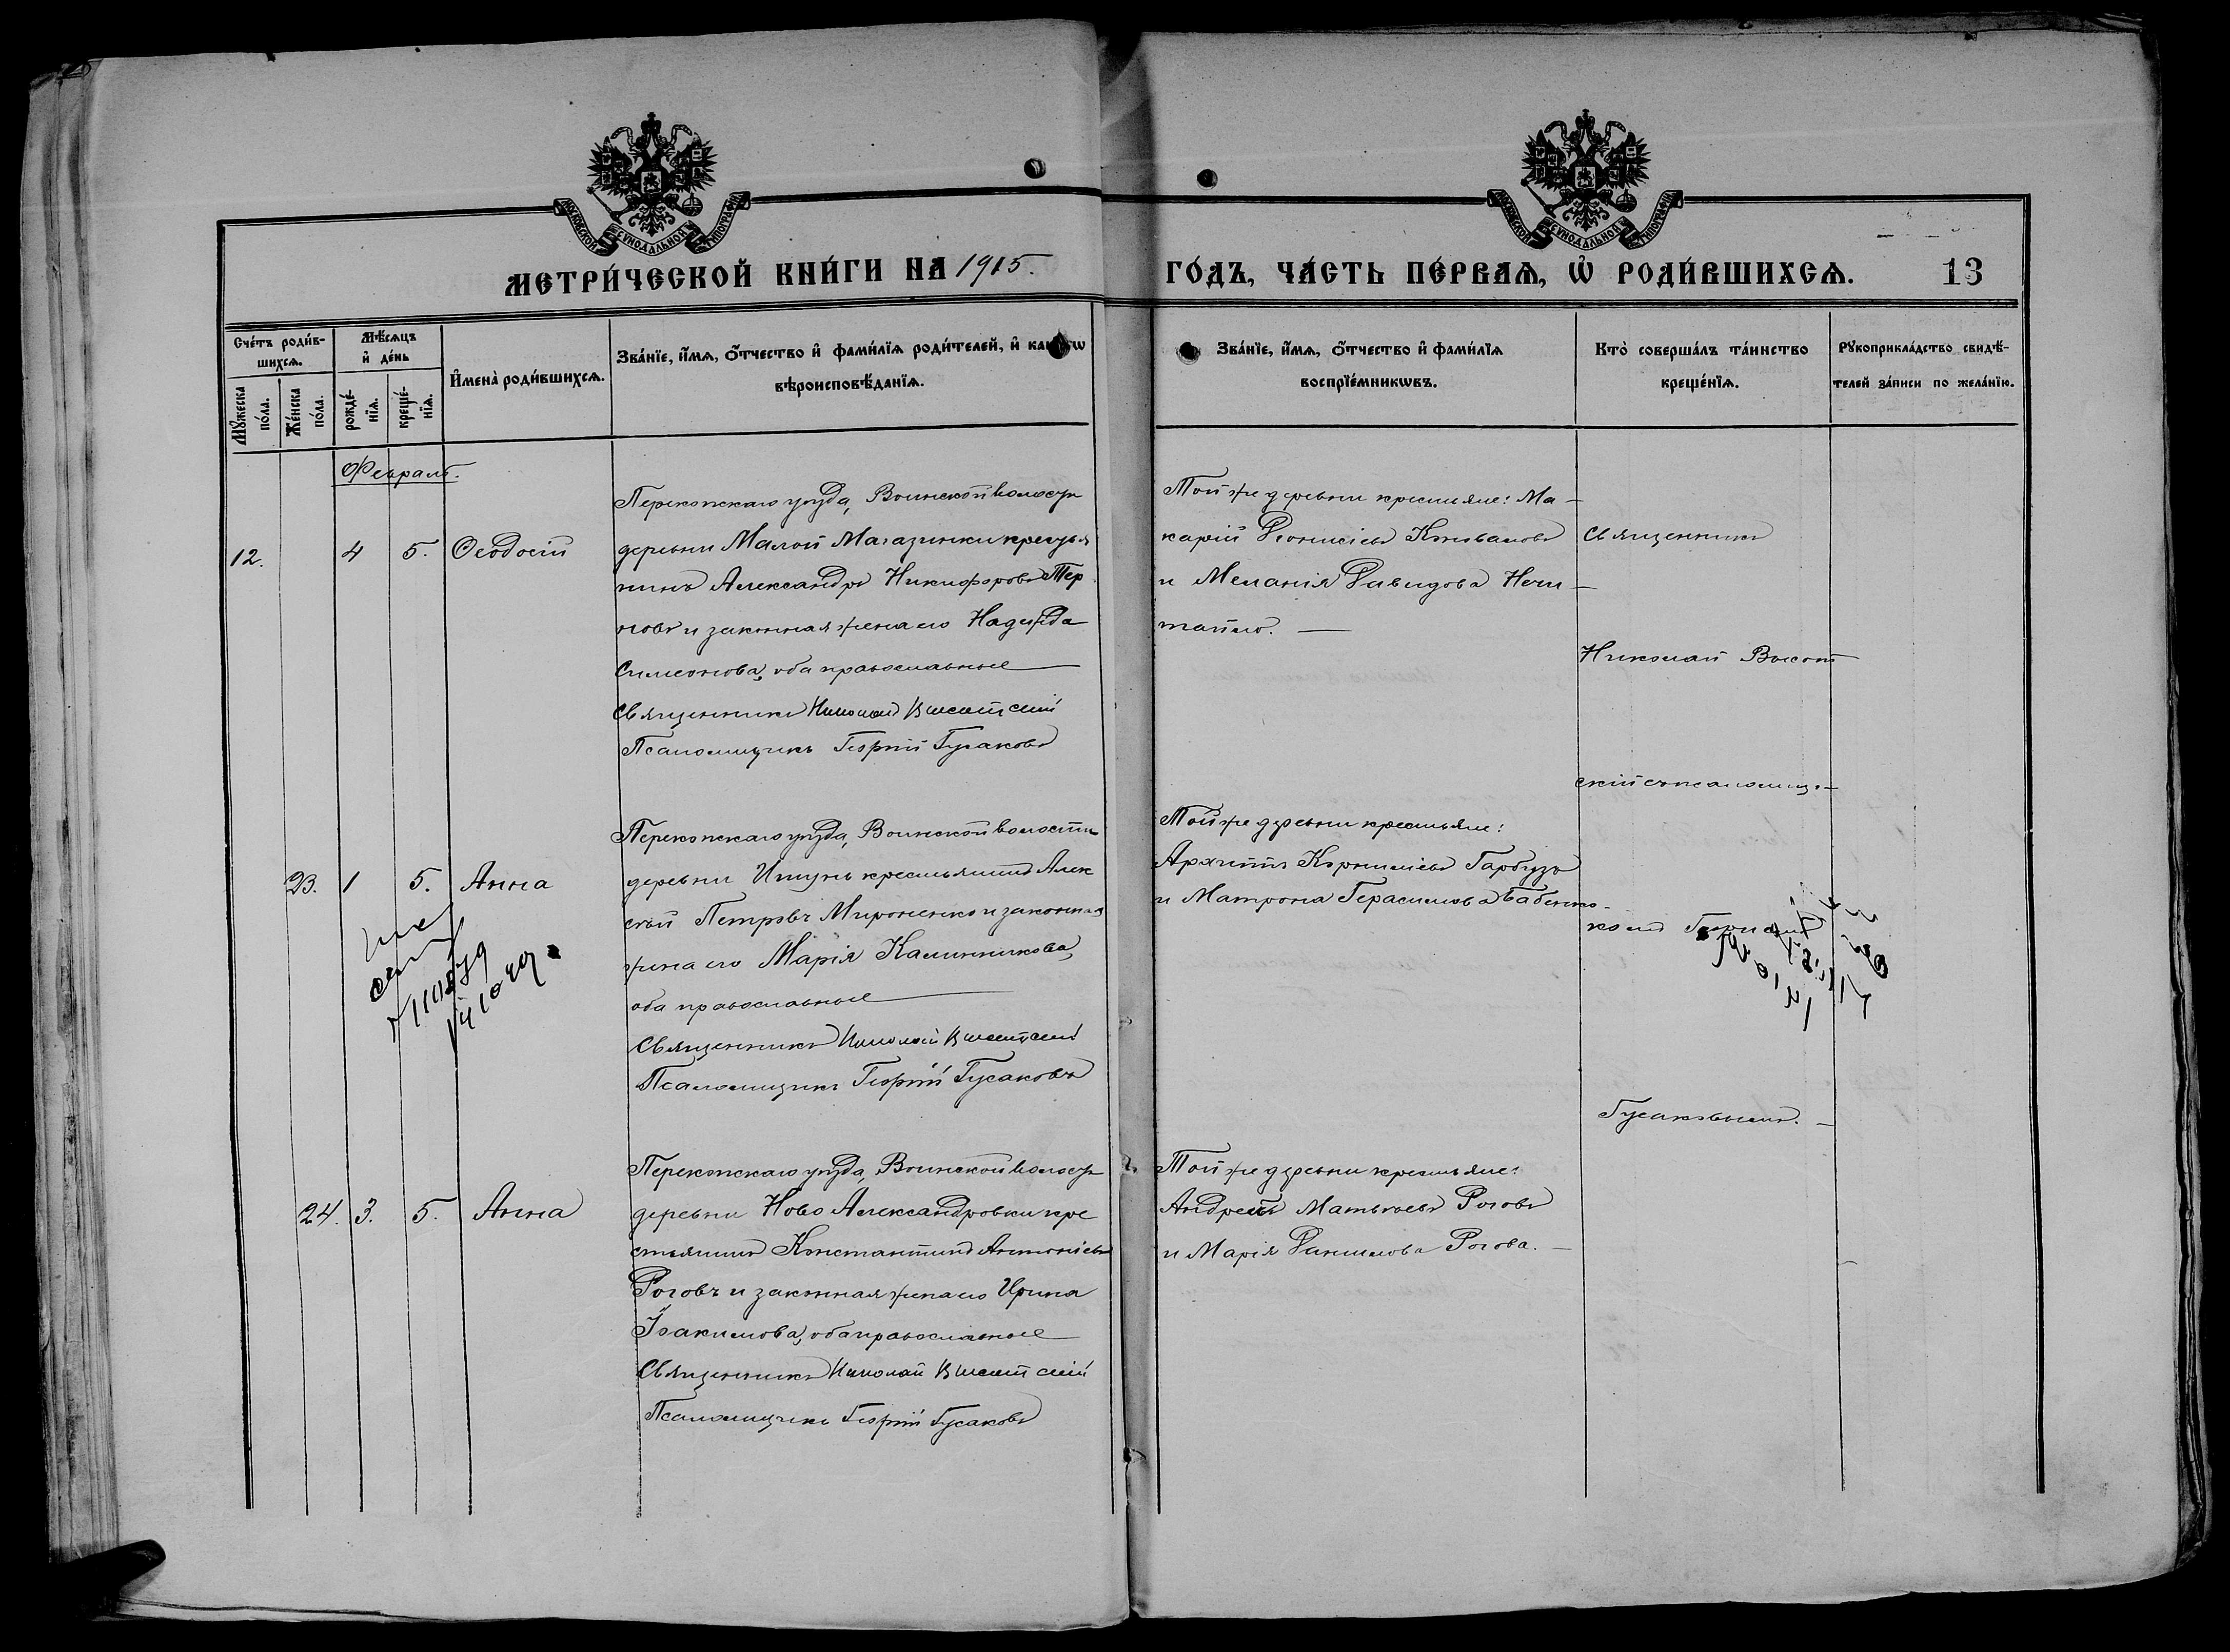 МОСКОВСКОЙ СУНОДАЛЬНОЙ ТИПОГРАФІИ
МОСКОВСКОЙ СУНОДАЛЬНОЙ ТИПОГРАФІИ
МЕТРИ́ЧЕСКОЙ КНИ́ГИ НА 1915.
ГО́ДЪ, ЧА́СТЬ ПЕ́РВАѦ, Ѡ҆ РОДИ́ВШИХСѦ. 13
Сче́тъ роди́в-
шихсѧ.
Мꙋ́жеска по́ла.
Же́нска по́ла.
Мѣ́сѧцъ
и҆ де́нь
рожде́-
нїѧ.
креще́-
нїѧ.
И҆мена̀ роди́вшихсѧ.
Зва́нїе, и҆́мѧ, ѻ҆́тчество и҆ фами́лїѧ роди́телей, и҆
вѣроисповѣ́данїѧ.
Зва́нїе, и҆́мѧ, ѻ҆́тчество и҆ фами́лїѧ
воспрїе́мникѡвъ.
Кто̀ соверша́лъ та́инство
креще́нїѧ.
Рꙋкоприкла́дство свидѣ́-
телей за́писи по жела́нїю.
Февраль.
12. 4 5. Ѳеодосій
Перекопскаго уѣзда, Воинской волости
деревни Малой Магазинки крестья
нинъ Александръ Никифоровъ Тер
новъ и законная жена его Надежда
Симеонова, оба православные
Священникъ Николай Высотскій
Псаломщикъ Георгій Гусаковъ
Той же деревни крестьяне: Ма-
карій Діонисіевъ Коновалов
и Меланія Давидова Нечи-
тайло. —
23. 1 5. Анна
Перекопскаго уѣзда, Воинской волости
деревни Ишунь крестьянинъ Алек
сѣй Петровъ Мироненко и законная
жена его Марія Калинникова,
оба православные
Священникъ Николай Высотскій
Псаломщикъ Георгій Гусаковъ
Той же деревни крестьяне:
Архиппъ Корниліевъ Гарбузъ
и Матрона Герасимова Бабенко.
24. 3. 5. Анна
Перекопскаго уѣзда, Воинской волости
деревни Ново Александровки кре
стьянинъ Константинъ Антоніевъ
Роговъ и законная жена его Ирина
Іоакимова, оба православные
Священникъ Николай Высотскій
Псаломщикъ Георгій Гусаковъ
Той же деревни крестьяне:
Андрей Матвѣевъ Роговъ
и Марія Данилова Рогова. —
Священникъ
Николай Высот
скій съ псаломщи-
комъ Георгіемъ
Гусаковымъ. —